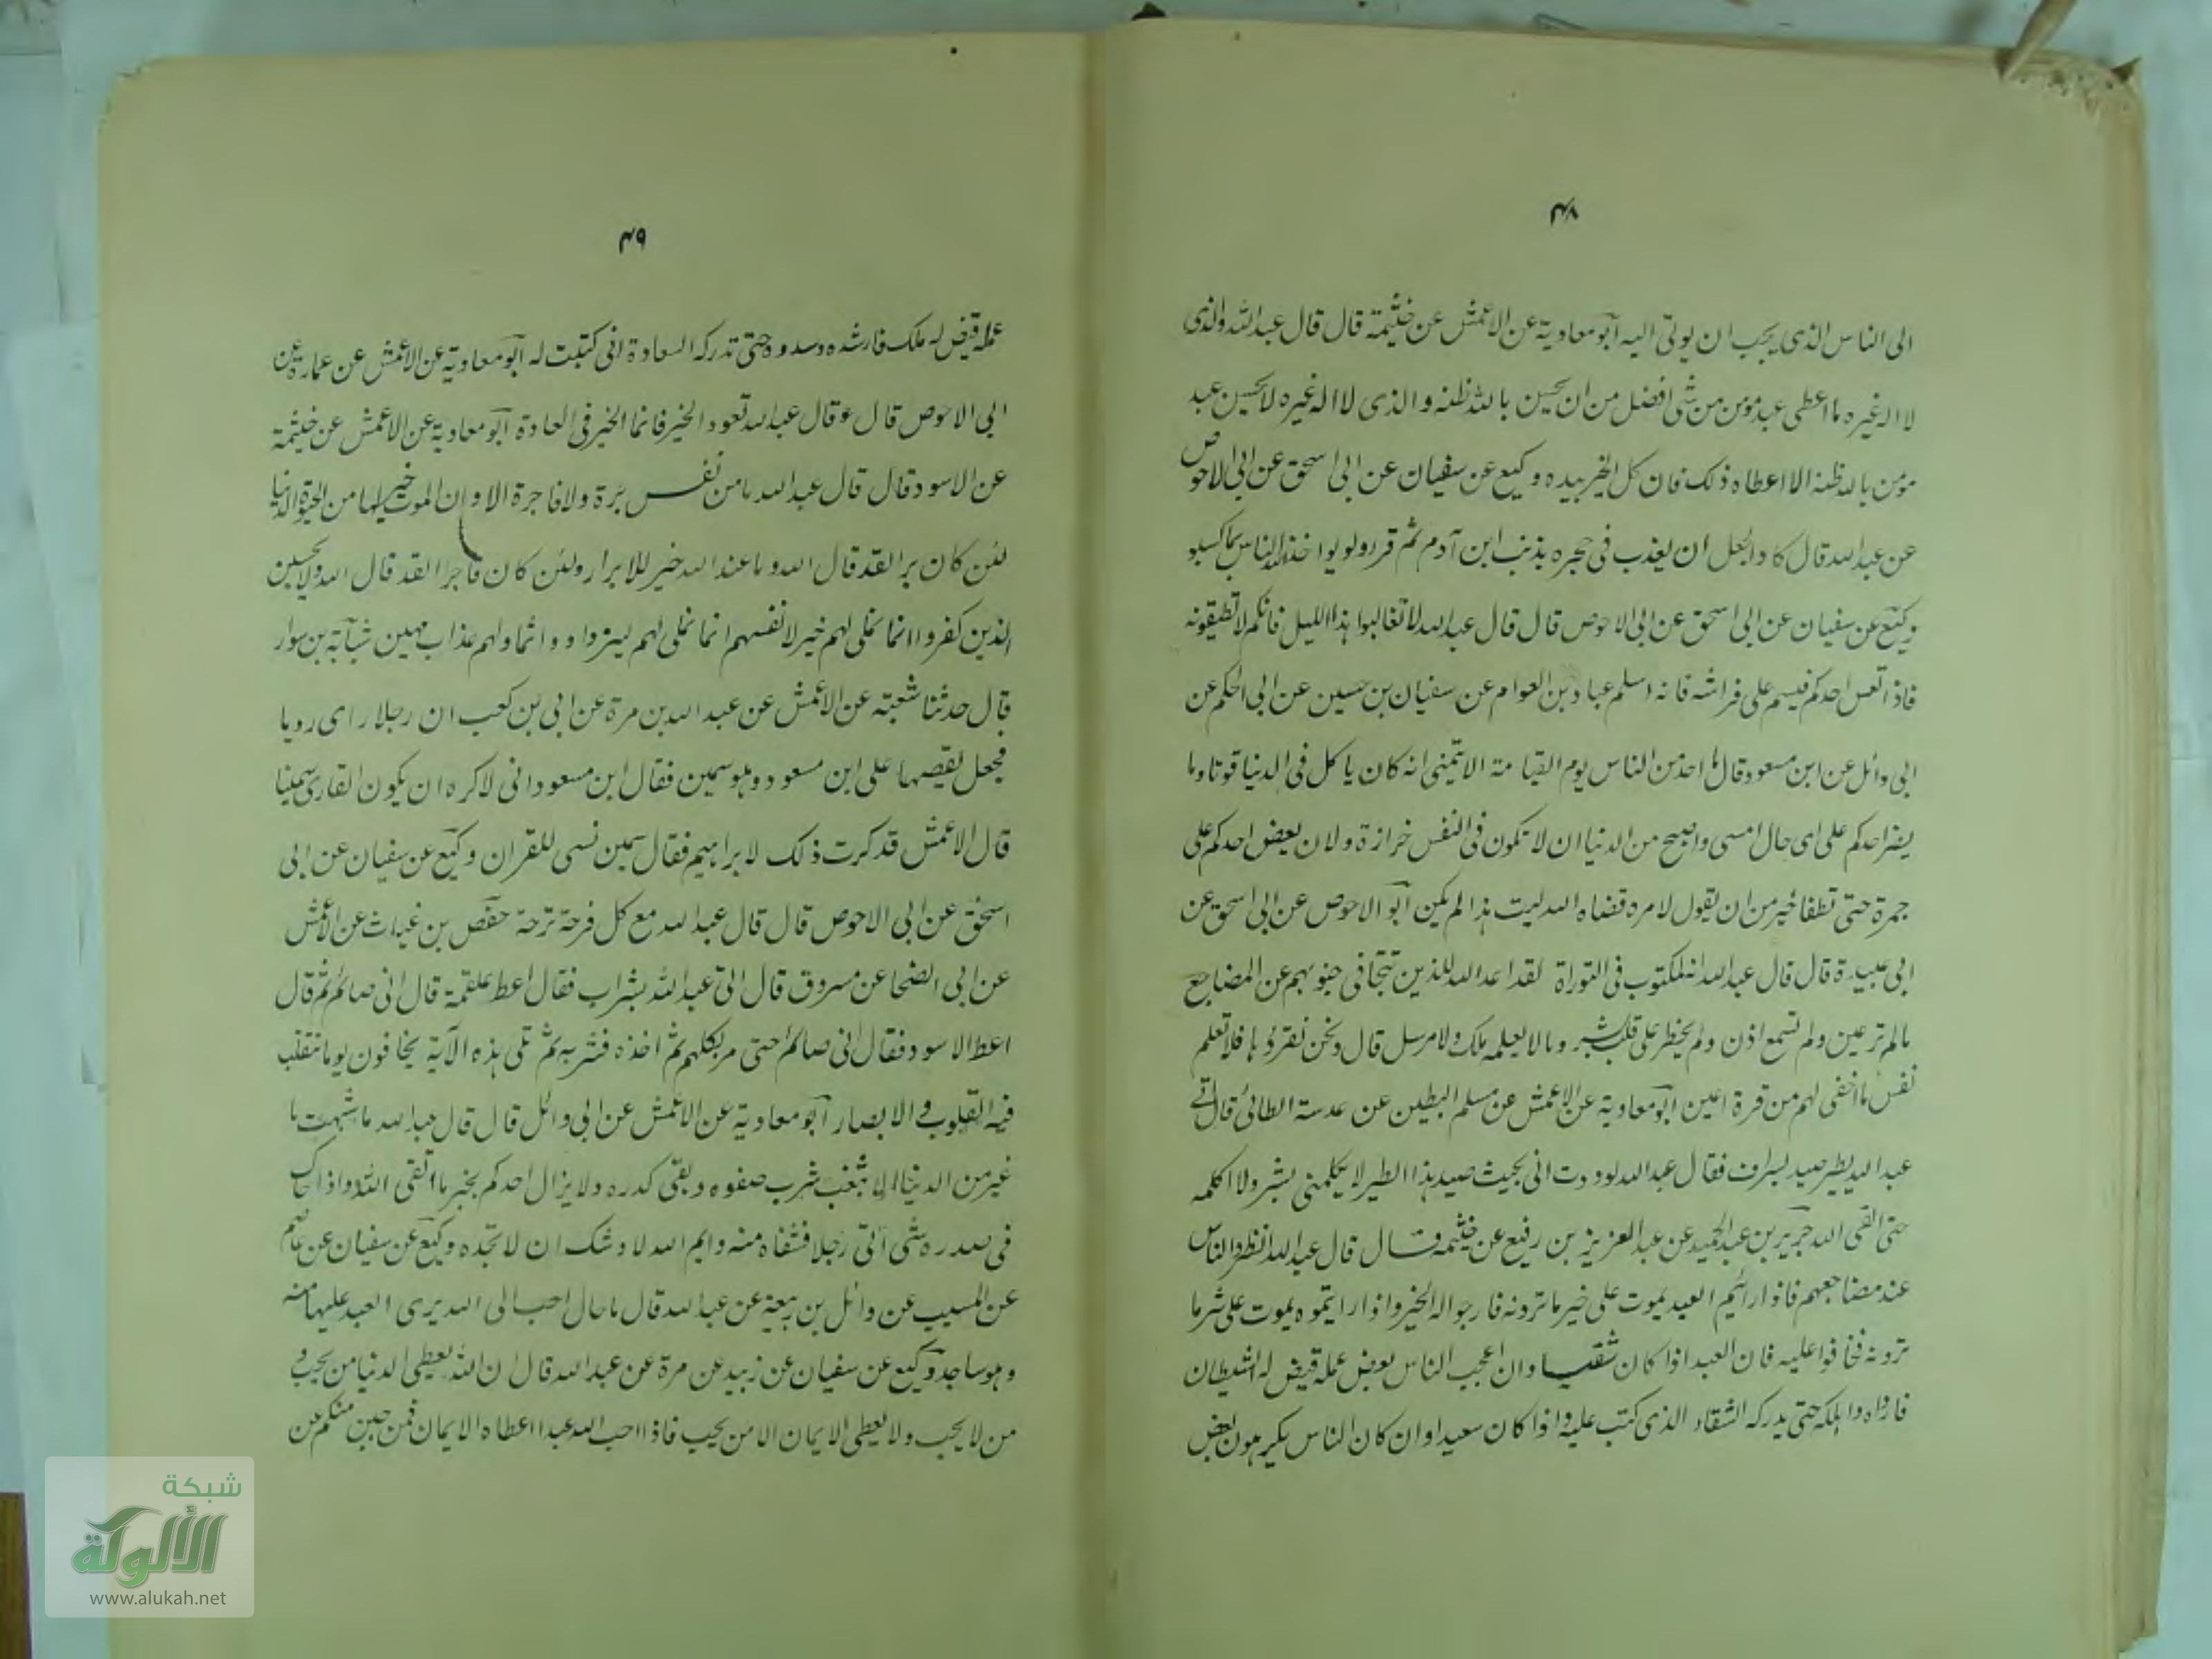 ٤٨
الى الناس الذى يحب ان يوتى اليه ابو معاوية عن الاعمش عن خثيمة قال قال عبد الله والذى
لا اله غيره ما اعطى عبد مومن من شى افضل من ان يحسن بالله ظنه و الذى لا اله غيره لا يحسن عبد
مومن بالله ظنه الا اعطاه ذلك فان كل الخير بيده وكيع عن سفيان عن ابى اسحق عن ابى الاحوص
عن عبد الله قال كاد الجعل ان يعذب فى جحره بذنب ابن آدم ثم قرء ولو يواخذ الله الناس بما كسبو
وكيع عن سفيان عن ابى اسحق عن ابى الاحوص قال قال عبد الله لا تغالبوا هذا الليل فانكم لا تطيقونه
فاذا نعس احدكم فلينم على فراشه فانه اسلم عباد بن العوام عن سفيان بن حسين عن ابى الحكم عن
ابى وائل عن ابن مسعود قال ما احد من الناس يوم القيامة الا يتمنى انه كان ياكل فى الدنيا قوتا وما
يضر احدكم على اى حال امسى واصبح من الدنيا ان لا تكون فى النفس خرازة ولان يعض احدكم على
جمرة حتى تطفا خير من ان يقول لامر قضاه الله ليت هذا لم يكن ابو الاحوص عن ابى اسحق عن
ابى عبيدة قال قال عبد الله انه لمكتوب فى التوراة لقد اعد الله للذين تتجافى جنوبهم عن المضاجع
مالم تر عين ولم تسمع اذن ولم يخطر على قلب بشر ومالا يعلمه ملك ولا مرسل قال ونحن نقرؤها فلا تعلم
نفس ما اخفى لهم من قرة اعين ابو معاوية عن الاعمش عن مسلم البطين عن عدسة الطائى قال اتى
عبد الله بطير صيد بسراف فقال عبد الله لوددت انى بحيث صيد هذا الطير لا يكلمنى بشر ولا اكلمه
حتى القى الله جرير بن عبد الحميد عن عبد العزيز بن رفيع عن خثيمه قال قال عبد الله انظروا الناس
عند مضاجعهم فاذا رائتم العبد يموت على خير ما ترونه فارجو اله الخير واذا رايتموه يموت على شر ما
ترونه فخافوا عليه فان العبد اذا كان شقيا وان اعجب الناس بعض عمله قيض له الشيطان
فارواه واهلكه حتى يدركه الشقاء الذى كتب عليه واذا كان سعيدا وان كان الناس يكرهون بعض
٤٩
عمله قيض له ملك فارشده وسدده حتى تدركه السعادة انى كتبت له ابو معاوية عن الاعمش عن عمارة عن
ابى الاحوص قال وقال عبد الله تعودوا الخير فانما الخير فى العادة ابو معاوية عن الاعمش عن خيثمة
عن الاسود قال قال عبد الله ما من نفس برة ولا فاجرة الا وان الموت خير لها من الحيوة الدنيا
لئن كان برا لقد قال الله وما عند الله خير للابرار ولئن كان فاجرا لقد قال الله ولا يحسبن
الذين كفروا انما نملى لهم خير لانفسهم انما نملى لهم ليزدادو اثما ولهم عذاب مهين شبابة بن سوار
قال حدثنا شعبة عن الاعمش عن عبد الله بن مرة عن ابى بن كعب ان رجلا راى رويا
فجعل يقصها على ابن مسعود وهو سمين فقال ابن مسعود انى لاكره ان يكون القارى سمينا
قال الاعمش قد كرت ذلك لابراهيم فقال سمين نسى للقران وكيع عن سفيان عن ابى
اسحق عن ابى الاحوص قال قال عبد الله مع كل فرحة ترحة حفص بن غياث عن الاعمش
عن ابى الضحا عن مسروق قال اتى عبد الله بشراب فقال اعط علقمة قال انى صائم ثم قال
اعط الاسود فقال انى صائم حتى مر بكلهم ثم اخذه فشربه ثم تلى هذه الآية يخافون يوما تتقلب
فيه القلوب و الابصار ابو معاوية عن الاعمش عن ابى وائل قال قال عبد الله ما شبهت ما
غبر من الدنيا الا بثغب شرب صفوه وبقى كدره ولا يزال احدكم بخير ما اتقى الله واذا حاك
فى صدره شى اتى رجلا فشفاه منه وايم الله لاوشك ان لا تجده وكيع عن سفيان عن عاصم
عن المسيب عن وائل بن ربيعة عن عبد الله قال ما حال احب الى الله يرى العبد عليها منه
وهو ساجد وكيع عن سفيان عن زبيد عن مرة عن عبد الله قال ان الله يعطى الدنيا من يحب و
من لا يحب ولا يعطى الايمان الا من يحب فاذا احب الله عبدا اعطاه الايمان فمن جبن منكم عن
شبكة
الألوكة
www.alukah.net